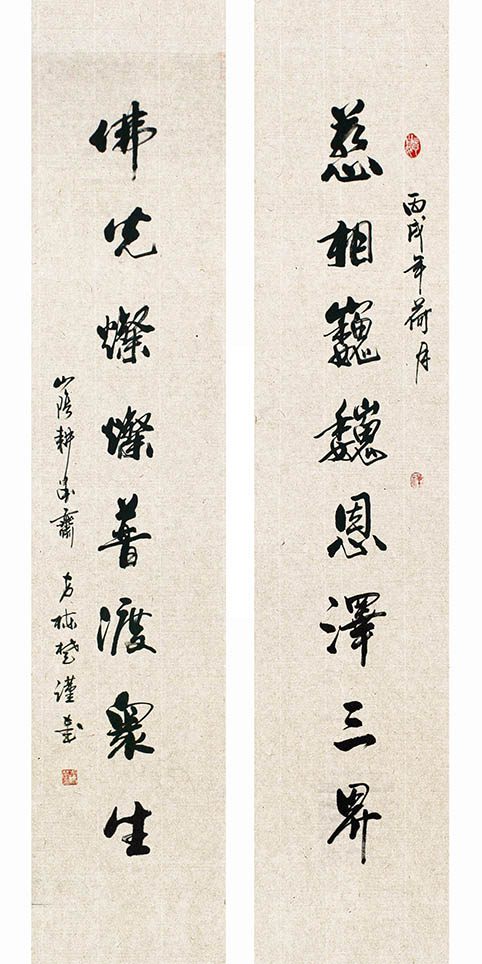 丙戌年荷月
慈相巍巍恩澤三界
佛光燦燦普渡眾生
山陰耕齋 方謹書